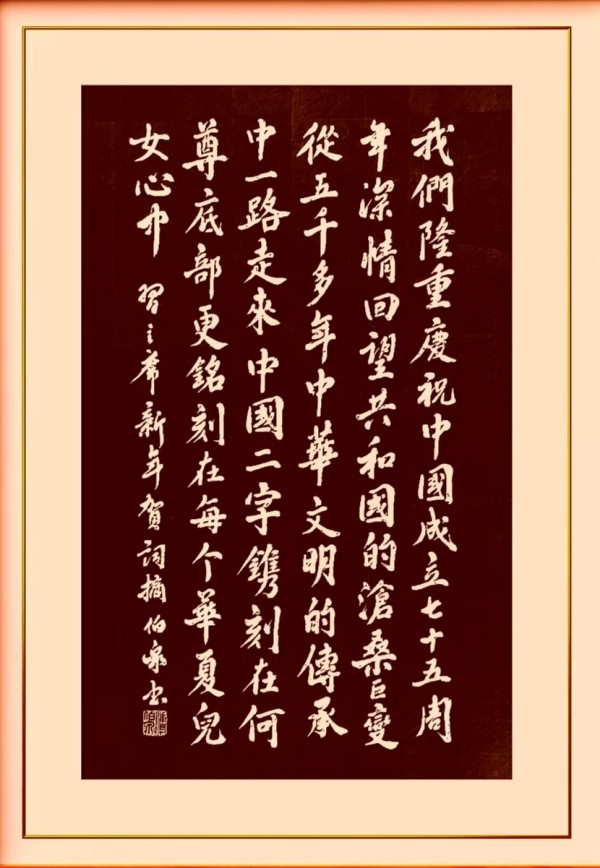 我們隆重慶祝中國成立七十五周
年深情回望共和國的滄桑巨變
從五千多年中華文明的傳承
中一路走來中國二字鐫刻在何
尊底部更銘刻在每个華夏兒
女心中 習主席新年賀詞摘 伯泉书